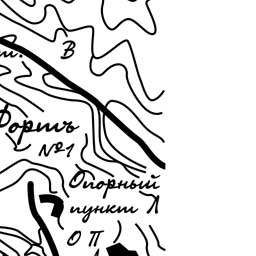 В
Фортъ
№1
Опорный
пункт Л
О П